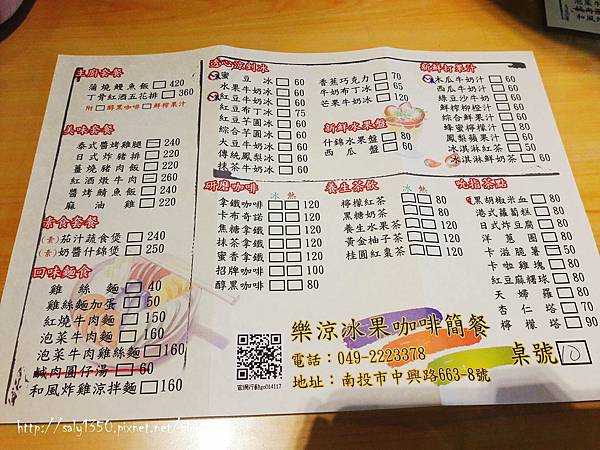 主廚套餐
蒲燒鰻魚飯 420
丁骨紅酒五花排 360
附: 醇黑咖啡 鮮榨果汁
美味套餐
泰式醬烤雞腿 240
日式炸豬排 220
薑燒豬肉飯 220
紅酒燉牛肉 260
醬烤鯖魚飯 220
麻油雞 220
素食套餐
(素)茄汁蔬食煲 240
(素)奶醬什錦煲 250
回味麵食
雞絲麵 40
雞絲麵加蛋 50
紅燒牛肉麵 150
泡菜牛肉麵 160
泡菜牛肉雞絲麵 160
鹹肉圓仔湯 60
和風炸雞涼拌麵 160
透心涼剉冰
蜜豆冰 60
水果牛奶冰 60
紅豆牛奶冰 60
紅豆布丁冰 75
紅豆芋圓冰 60
綜合芋圓冰 60
大豆牛奶冰 60
傳統鳳梨冰 60
抹茶牛奶冰 60
香蕉巧克力 70
牛奶布丁冰 65
芒果牛奶冰 120
新鮮水果盤
什錦水果盤 80
西瓜盤 60
新鮮打果汁
木瓜牛奶汁 60
西瓜牛奶汁 60
綠豆沙牛奶 60
鮮榨柳橙汁 60
綜合鮮果汁 60
蜂蜜檸檬汁 80
鳳梨蘋果汁 60
冰淇淋紅茶 50
冰淇淋鮮奶茶 60
研磨咖啡 冰 熱
拿鐵咖啡 120
卡布奇諾 120
焦糖拿鐵 120
抹茶拿鐵 120
蜜香拿鐵 120
招牌咖啡 100
醇黑咖啡 100
養生茶飲 冰 熱
檸檬紅茶 80
黑糖奶茶 80
養生水果茶 80
黃金柚子茶 80
桂圓紅棗茶 80
吮指茶點
黑胡椒米血 80
港式蘿蔔糕 80
日式炸豆腐 80
洋蔥圈 80
卡滋脆薯 50
卡啦雞塊 80
紅豆麻糬球 80
天婦羅 80
杏仁塔 70
檸檬塔 90
官網行動go014117
樂涼冰果咖啡簡餐
電話：049-2223378
地址：南投市中興路663-8號
桌號 10
http://saly1350.pixnet.net/blog